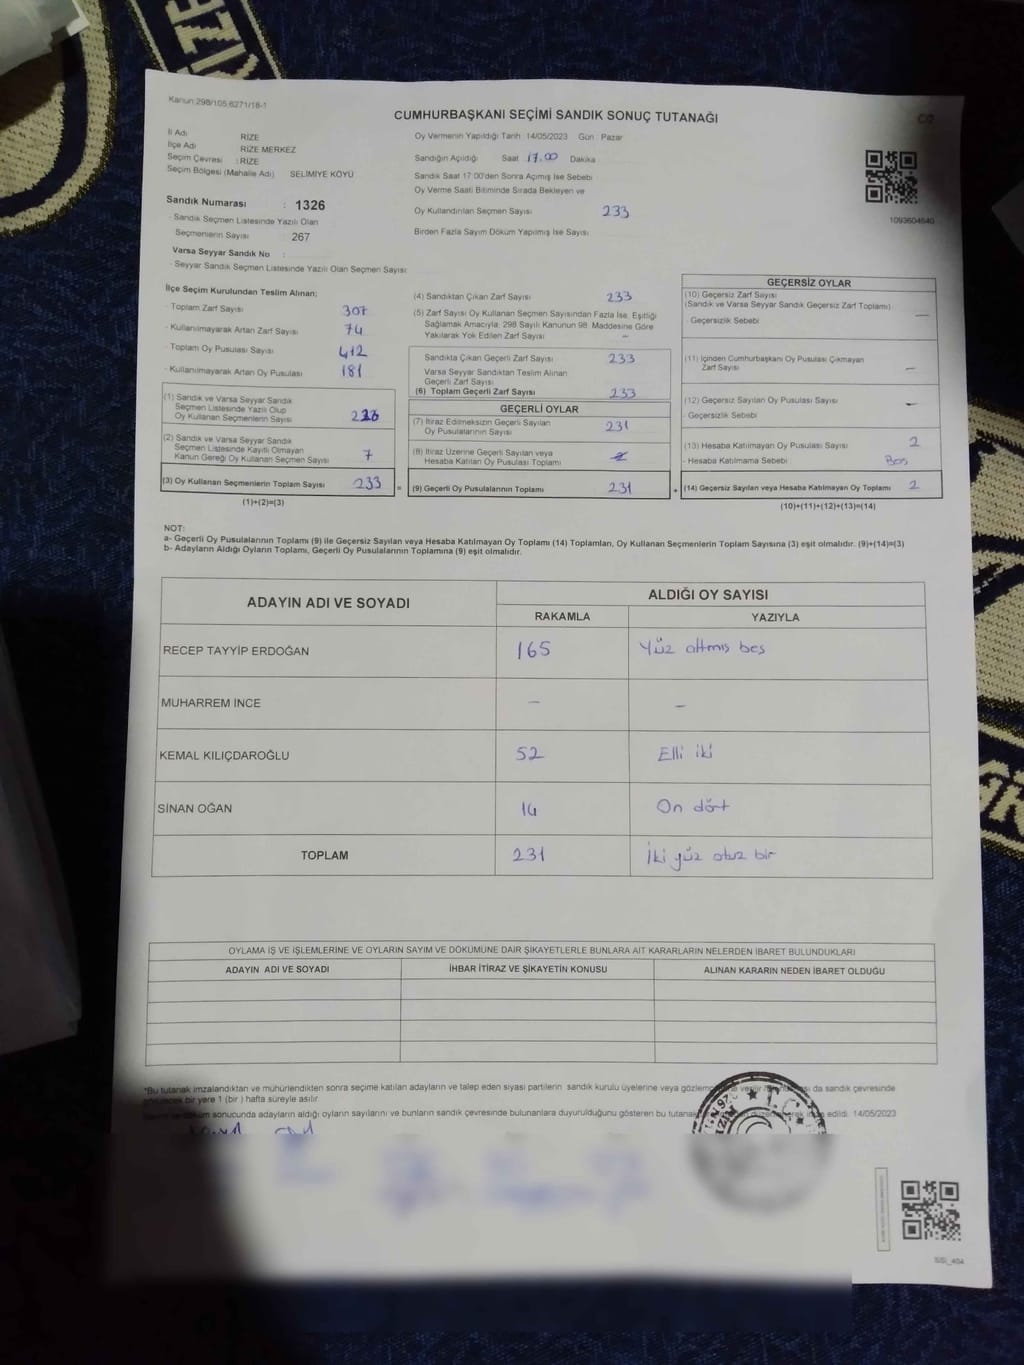 Kanun:298/105,6271/18-1
CUMHURBAŞKANI SEÇİMİ SANDIK SONUÇ TUTANAĞI
İli Adı RİZE
İlçe Adı RİZE MERKEZ
Seçim Çevresi : RİZE
Seçim Bölgesi (Mahalle Adı) SELİMİYE KÖYÜ
Sandık Numarası : 1326
- Sandık Seçmen Listesinde Yazılı Olan
Seçmenlerin Sayısı 267
Varsa Seyyar Sandık No :
- Seyyar Sandık Seçmen Listesinde Yazılı Olan Seçmen Sayısı:
Oy Vermenin Yapıldığı Tarih 14/05/2023 Gün : Pazar
Sandığın Açıldığı Saat 17.00 Dakika
Sandık Saat 17:00'den Sonra Açımış İse Sebebi
Oy Verme Saati Bitiminde Sırada Bekleyen ve
Oy Kullandırılan Seçmen Sayısı 233
Birden Fazla Sayım Döküm Yapılmış İse Sayısı
1093604640
İlçe Seçim Kurulundan Teslim Alınan:
- Toplam Zarf Sayısı 307
- Kullanılmayarak Artan Zarf Sayısı 74
- Toplam Oy Pusulası Sayısı 412
- Kullanılmayarak Artan Oy Pusulası 181
(1) Sandık ve Varsa Seyyar Sandık
Seçmen Listesinde Yazılı Olup
Oy Kullanan Seçmenlerin Sayısı
(2) Sandık ve Varsa Seyyar Sandık
Seçmen Listesinde Kayıtlı Olmayan
Kanun Gereği Oy Kullanan Seçmen Sayısı 7
(3) Oy Kullanan Seçmenlerin Toplam Sayısı 233 =
(1)+(2)=(3)
(4) Sandıktan Çıkan Zarf Sayısı 233
(5) Zarf Sayısı Oy Kullanan Seçmen Sayısından Fazla İse, Eşitliği
Sağlamak Amacıyla; 298 Sayılı Kanunun 98. Maddesine Göre
Yakılarak Yok Edilen Zarf Sayısı –
Sandıkta Çıkan Geçerli Zarf Sayısı 233
Varsa Seyyar Sandıktan Teslim Alınan
Geçerli Zarf Sayısı
(6) Toplam Geçerli Zarf Sayısı 233
GEÇERLİ OYLAR
(7) İtiraz Edilmeksizin Geçerli Sayılan
Oy Pusulalarının Sayısı 231
(8) İtiraz Üzerine Geçerli Sayılan veya
Hesaba Katılan Oy Pusulası Toplamı
(9) Geçerli Oy Pusulalarının Toplamı 231 +
GEÇERSİZ OYLAR
(10) Geçersiz Zarf Sayısı
(Sandık ve Varsa Seyyar Sandık Geçersiz Zarf Toplamı) –
- Geçersizlik Sebebi
(11) İçinden Cumhurbaşkanı Oy Pusulası Çıkmayan
Zarf Sayısı –
(12) Geçersiz Sayılan Oy Pusulası Sayısı –
- Geçersizlik Sebebi
(13) Hesaba Katılmayan Oy Pusulası Sayısı 2
- Hesaba Katılmama Sebebi Boş
(14) Geçersiz Sayılan veya Hesaba Katılmayan Oy Toplamı 2
(10)+(11)+(12)+(13)=(14)
NOT:
a- Geçerli Oy Pusulalarının Toplamı (9) ile Geçersiz Sayılan veya Hesaba Katılmayan Oy Toplamı (14) Toplamları, Oy Kullanan Seçmenlerin Toplam Sayısına (3) eşit olmalıdır. (9)+(14)=(3)
b- Adayların Aldığı Oyların Toplamı, Geçerli Oy Pusulalarının Toplamına (9) eşit olmalıdır.
ADAYIN ADI VE SOYADI ALDIĞI OY SAYISI
RAKAMLA YAZIYLA
RECEP TAYYİP ERDOĞAN 165 Yüz altmış beş
MUHARREM İNCE – –
KEMAL KILIÇDAROĞLU 52 Elli iki
SİNAN OĞAN 14 On dört
TOPLAM 231 İki yüz otuz bir
OYLAMA İŞ VE İŞLEMLERİNE VE OYLARIN SAYIM VE DÖKÜMÜNE DAİR ŞİKAYETLERLE BUNLARA AİT KARARLARIN NELERDEN İBARET BULUNDUKLARI
ADAYIN ADI VE SOYADI İHBAR İTİRAZ VE ŞİKAYETİN KONUSU ALINAN KARARIN NEDEN İBARET OLDUĞU
*Bu tutanak imzalandıktan ve mühürlendikten sonra seçime katılan adayların ve talep eden siyasi partilerin sandık kurulu üyelerine veya da sandık çevresinde
bir yere 1 (bir ) hafta süreyle asılır
sonucunda adayların aldığı oyların sayılarını ve bunların sandık çevresinde bulunanlara duyurulduğunu gösteren bu edildi. 14/05/2023
T.C.
SSİ_404